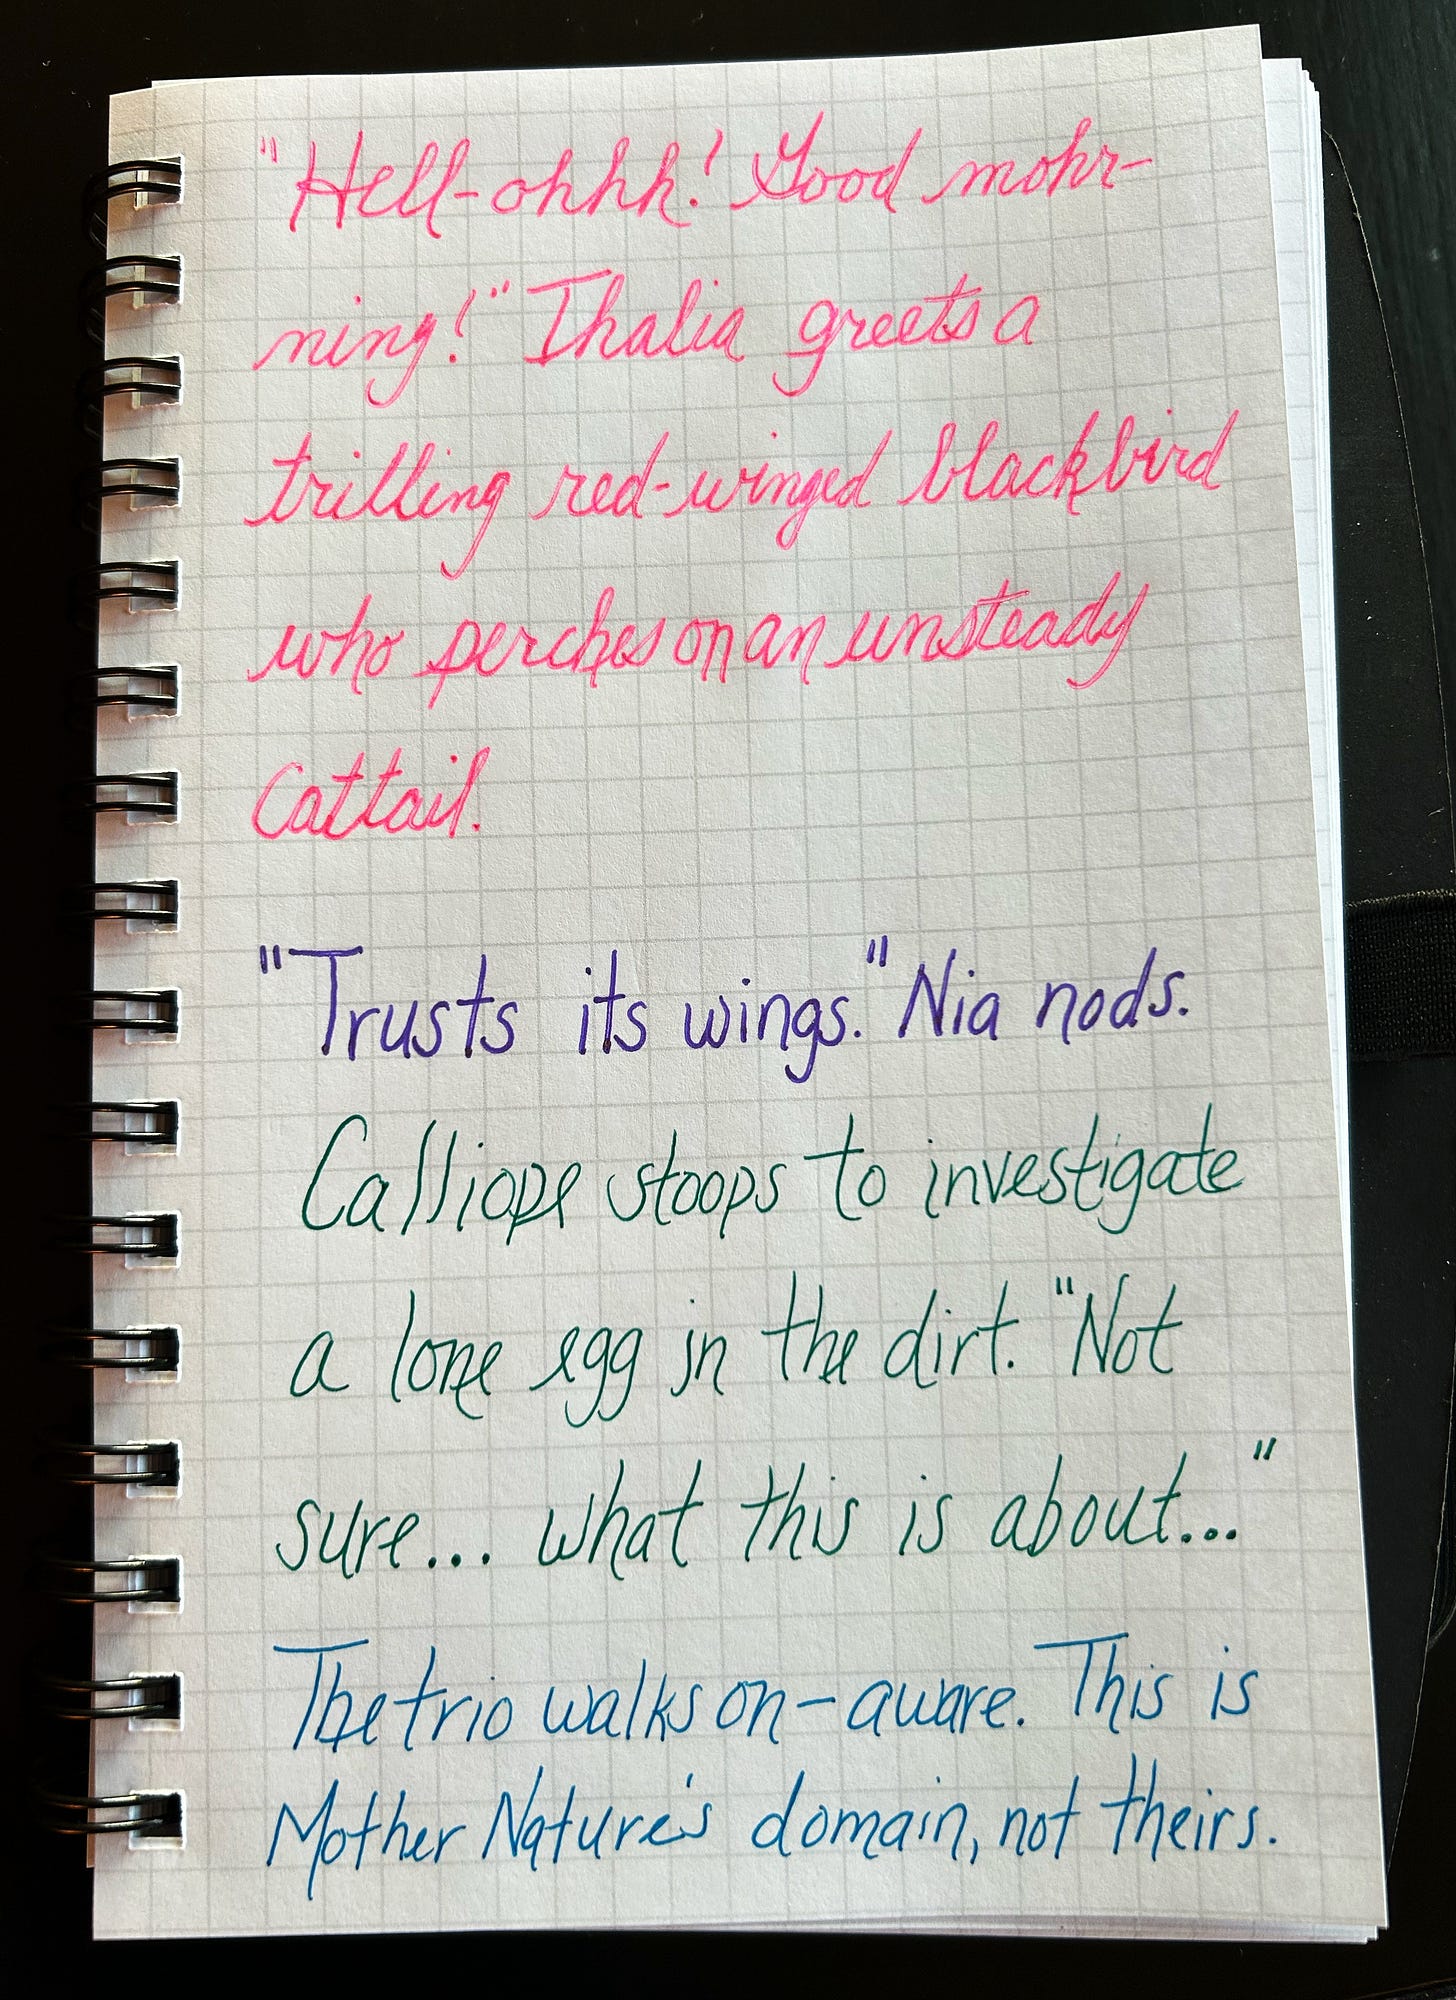 "Hell-ohhh! Good mohr-
ning!" Thalia greets a
trilling red-winged blackbird
who perches on an unsteady
Cattail.
"Trusts its wings." Nia nods.
Calliope stoops to investigate
a lone egg in the dirt. "Not
sure... what this is about..."
The trio walks on – aware. This is
Mother Nature's domain, not theirs.